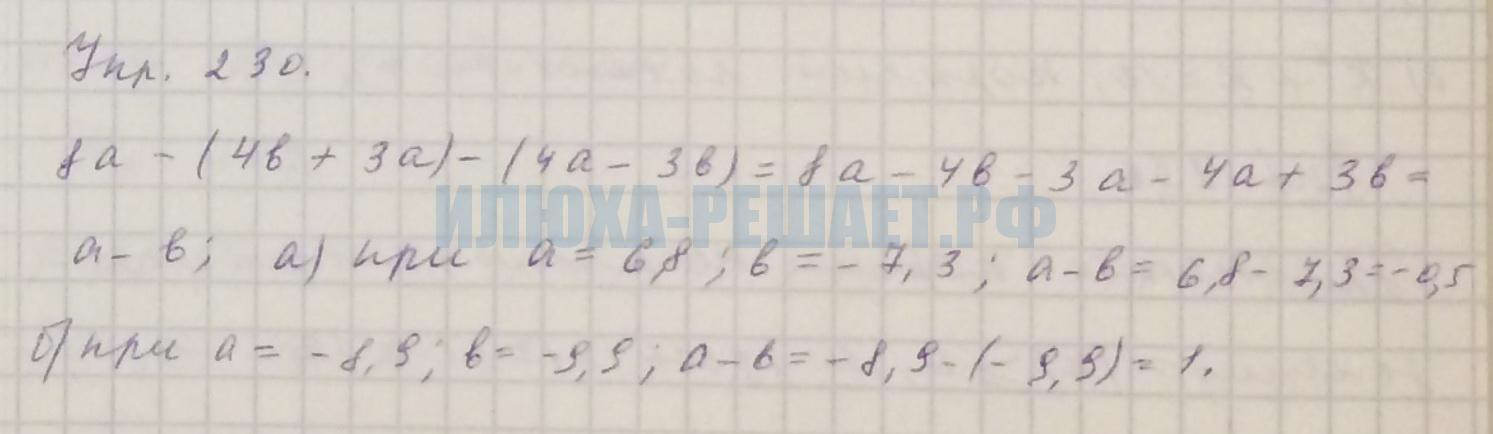 Упр. 230.
8а - (4в + 3а) - (4а - 3в) = 8а - 4в - 3а - 4а + 3в =
ИЛЮХА-РЕШАЕТ.РФ
а - в; а) при а = 6,8; в = - 7,3; а - в = 6,8 - 7,3 = -0,5
б) при а = - 8,9; в = -9,9; а - в = - 8,9 - (- 9,9) = 1.